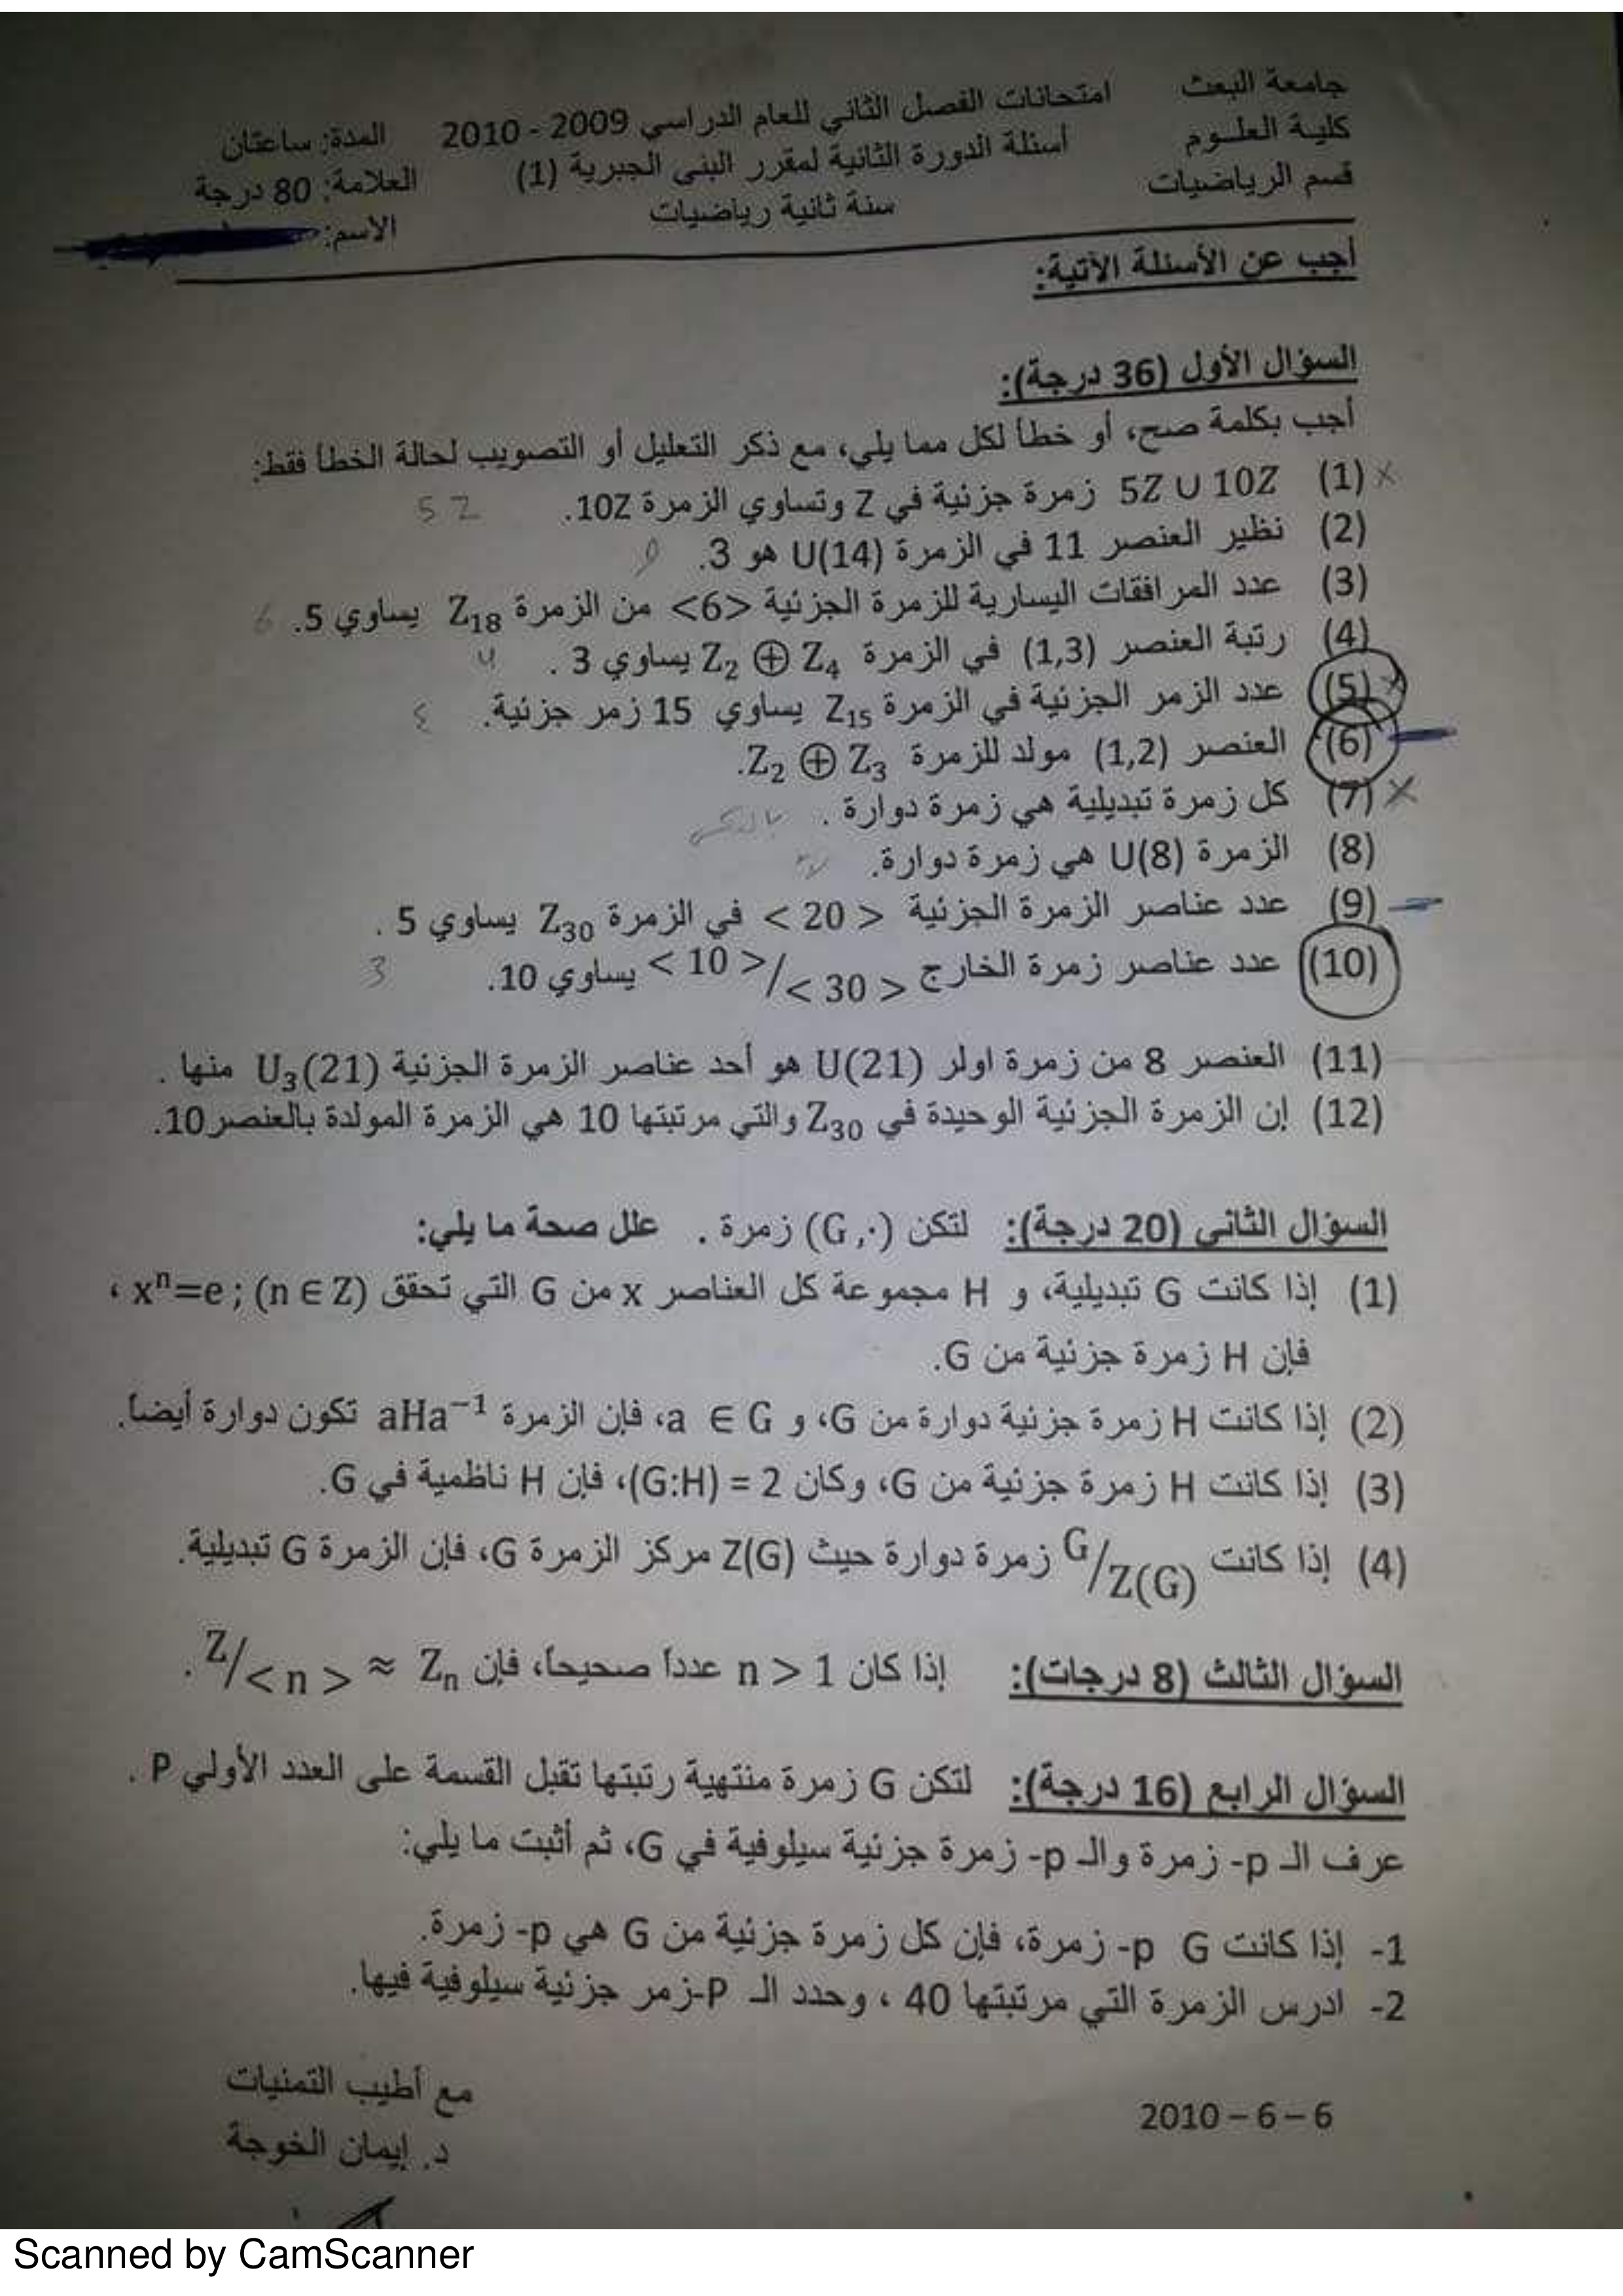 جامعة البعث
كلية العلوم
قسم الرياضيات
امتحانات الفصل الثاني للعام الدراسي 2009 - 2010
أسئلة الدورة الثانية لمقرر البنى الجبرية (1)
سنة ثانية رياضيات
المدة: ساعتان
العلامة: 80 درجة
الاسم:
أجب عن الأسئلة الآتية:
السؤال الأول (36 درجة):
أجب بكلمة صح، أو خطأ لكل مما يلي، مع ذكر التعليل أو التصويب لحالة الخطأ فقط:
(1) 5Z ∪ 10Z زمرة جزئية في Z وتساوي الزمرة 10Z. 5 Z
(2) نظير العنصر 11 في الزمرة U(14) هو 3.
(3) عدد المرافقات اليسارية للزمرة الجزئية <6> من الزمرة Z₁₈ يساوي 5. 6
(4) رتبة العنصر (1,3) في الزمرة Z₂ ⊕ Z₄ يساوي 3 .
(5) عدد الزمر الجزئية في الزمرة Z₁₅ يساوي 15 زمر جزئية.
(6) العنصر (1,2) مولد للزمرة Z₂ ⊕ Z₃.
(7) كل زمرة تبديلية هي زمرة دوارة . بالعكس
(8) الزمرة U(8) هي زمرة دوارة.
(9) عدد عناصر الزمرة الجزئية < 20 > في الزمرة Z₃₀ يساوي 5 .
(10) عدد عناصر زمرة الخارج < 10 >/< 30 > يساوي 10. 3
(11) العنصر 8 من زمرة اولر U(21) هو أحد عناصر الزمرة الجزئية U₃(21) منها .
(12) إن الزمرة الجزئية الوحيدة في Z₃₀ والتي مرتبتها 10 هي الزمرة المولدة بالعنصر 10.
السؤال الثاني (20 درجة): لتكن (G,·) زمرة . علل صحة ما يلي:
(1) إذا كانت G تبديلية، و H مجموعة كل العناصر x من G التي تحقق xⁿ=e ; (n ∈ Z) ،
فإن H زمرة جزئية من G.
(2) إذا كانت H زمرة جزئية دوارة من G، و a ∈ G، فإن الزمرة aHa⁻¹ تكون دوارة أيضاً.
(3) إذا كانت H زمرة جزئية من G، وكان (G:H) = 2، فإن H ناظمية في G.
(4) إذا كانت G/Z(G) زمرة دوارة حيث Z(G) مركز الزمرة G، فإن الزمرة G تبديلية.
السؤال الثالث (8 درجات): إذا كان n > 1 عدداً صحيحاً، فإن Z/< n > ≈ Zₙ .
السؤال الرابع (16 درجة): لتكن G زمرة منتهية رتبتها تقبل القسمة على العدد الأولي P .
عرف الـ p- زمرة والـ p- زمرة جزئية سيلوفية في G، ثم أثبت ما يلي:
1- إذا كانت G p- زمرة، فإن كل زمرة جزئية من G هي p- زمرة.
2- ادرس الزمرة التي مرتبتها 40 ، وحدد الـ P-زمر جزئية سيلوفية فيها.
مع أطيب التمنيات
د. إيمان الخوجة
2010 – 6 – 6
Scanned by CamScanner